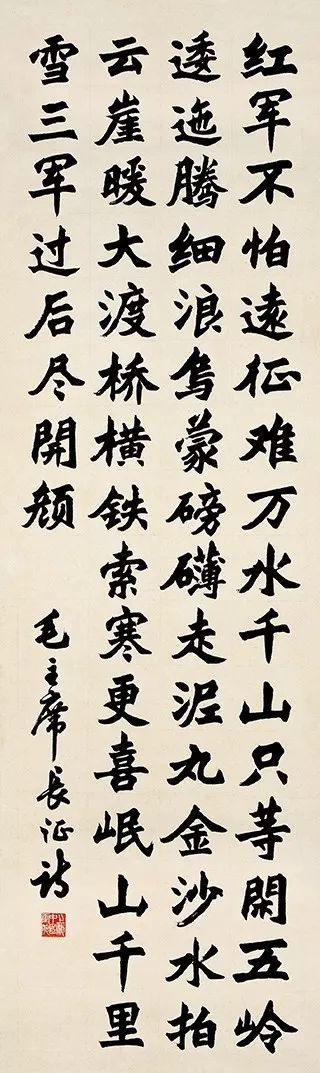 红军不怕遠征难万水千山只等閑五岭
逶迤騰细浪乌蒙磅礴走泥丸金沙水拍
云崖暖大渡桥横铁索寒更喜岷山千里
雪三军过后尽開颜
毛主席長征诗